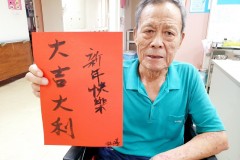 新年快樂
大吉大利